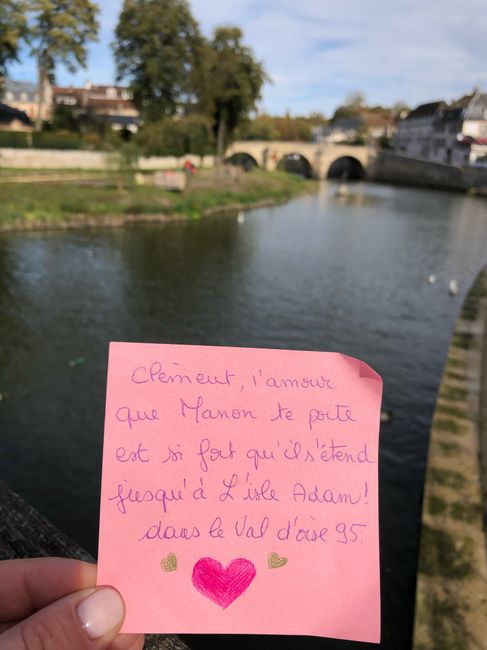 Clément, l'amour
que Manon te porte
est si fort qu'il s'étend
jusqu'à L'isle Adam!
dans le Val d'oise 95.